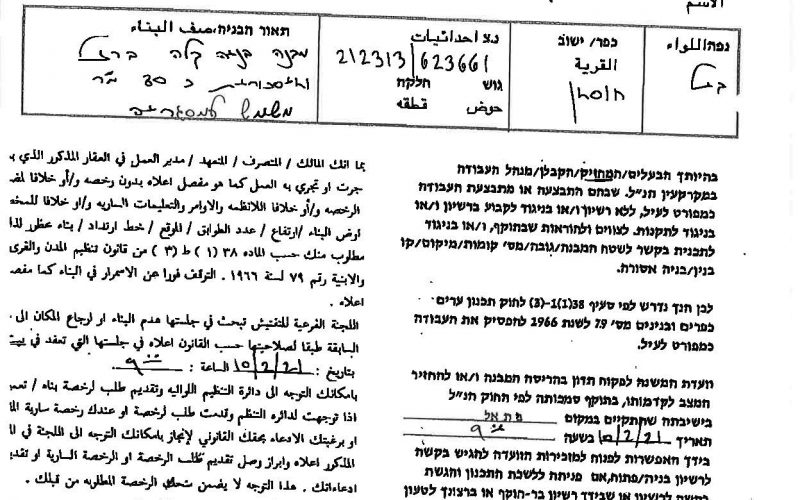 נפה/לואء
כפר/ ישוב
القرية
נ.צ /احداثيات
212313/623661
גוש חלקה
حوض قطعه
تاور הבניה/وصف البناء
מבנה בניה קלה
30
בהיותך הבעלים/המחזיק/הקבלן/מנהל העבודה
במקרקעין הנ"ל. שבהם התבצעה או מתבצעת העבודה
כמפורט לעיל, ללא רשיון ו/או בניגוד לקבוע ברשיון ו/או
בניגוד לתקנות. לצווים ולהוראות שבתוקף, ו/או בניגוד
לתכנית בקשר לשטח המבנה/גובה/מס' קומות/מיקום/קו
בנין/בניה אסורה.
לכן הנך נדרש לפי סעיף 38(1)-(3) לחוק תכנון ערים
כפרים ובנינים מס' 79 לשנת 1966 להפסיק את העבודה
כמפורט לעיל.
וועדת המשנה לפקוח תדון בהריסת המבנה ו/או להחזיר
המצב לקדמותו, בתוקף סמכותה לפי החוק הנ"ל
בישיבתה שתתקיים במקום בית אל
תאריך 10/2/21 בשעה 9
בידך האפשרות לפנות למזכירות הוועדה להגיש בקשה
לרשיון בניה/פתוח, אם פניתה ללשכת התכנון והגשת
בקשה לרשיון או שבידך רשיון בר-תוקף או ברצונך לטעון
بما انك المالك / المتصرف / المتعهد / مدير العمل في العقار المذكور الذي
جرت او تجري به العمل كما هو مفصل اعلاه بدون رخصه و/أو خلافا
الرخصه و/أو خلافا للانظمه والاوامر والتعليمات الساريه و/او خلافا
اوض البناء /ارتفاع / عدد الطوابق / الموقع / خط ارتداد / بناء محظور لذا
مطلوب منك حسب الماده ٣٨ (١) ط (٣) من قانون تنظيم المدن والقرى
والابنية رقم ٧٩ لسنة ١٩٦٦. التوقف فورا عن الاسمرار في البناء كما
اعلاه .
اللجنة الفرعية للتفتيش تبحث في جلستها هدم البناء او ارجاع المكان الى
السابقة طبقا لصلاحيتها حسب القانون اعلاه في جلستها التي تعقد في بيت
بتاريخ : 10/2/21 الساعة : 9
بامكانك التوجه الى دائرة التنظيم اللوائيه وتقديم طلب لرخصة بناء /
اذا توجهت لدائره التنظم وقدمت طلب لرخصة او عندك رخصة سارية
او برغبتك الادعاء بحقك القانوني لإنجاز بامكانك التوجه الى اللجنة في
المذكور اعلاه وابراز وصل تقديم طلب الرخصة او الرخصة السارية او
ادعاءاتك . هذا التوجه لا يضمن منحك الرخصة المطلوبه من قبلك .